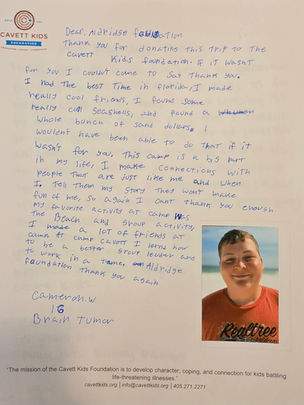 CAVETT KIDS
FOUNDATION
Dear, Aldridge foundation
Thank you for donating this trip to the
Cavett Kids foundation. if it wasn't
for you I couldn't come to say thank you.
I had the best time in florida, I made
really cool friends, I found some
really cool Seashells, and found a
whole bunch of sand dollars. I
wouldn't have been able to do that if it
wasn't for you. This camp is a big part
in my life, I make connections with
people that are just like me and when
I tell them my story they wont make
fun of me, so again I cant thank you enough.
My favorite activity at camp was
The Beach and Group activity,
I made a lot of friends at
camp cavett I learn how
to be a better group leader and
to work in a Aldridge
foundation thank you again
Cameron.W
16
Brain Tumor
Realtree
"The mission of the Cavett Kids Foundation is to develop character, coping, and connection for kids battling
life-threatening illnesses."
cavettkids.org | info@cavettkids.org | 405.271.2271